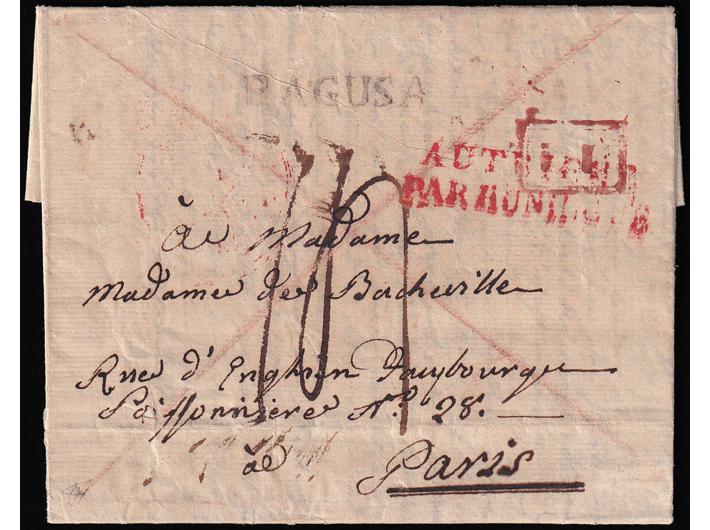 RAGUSA
AUTRICHE
PAR HUNINGUE
à Madame
Madame de Bacheville
Rue d'Enghien Fauybourge
Poissonnière N.º 28.
à
Paris